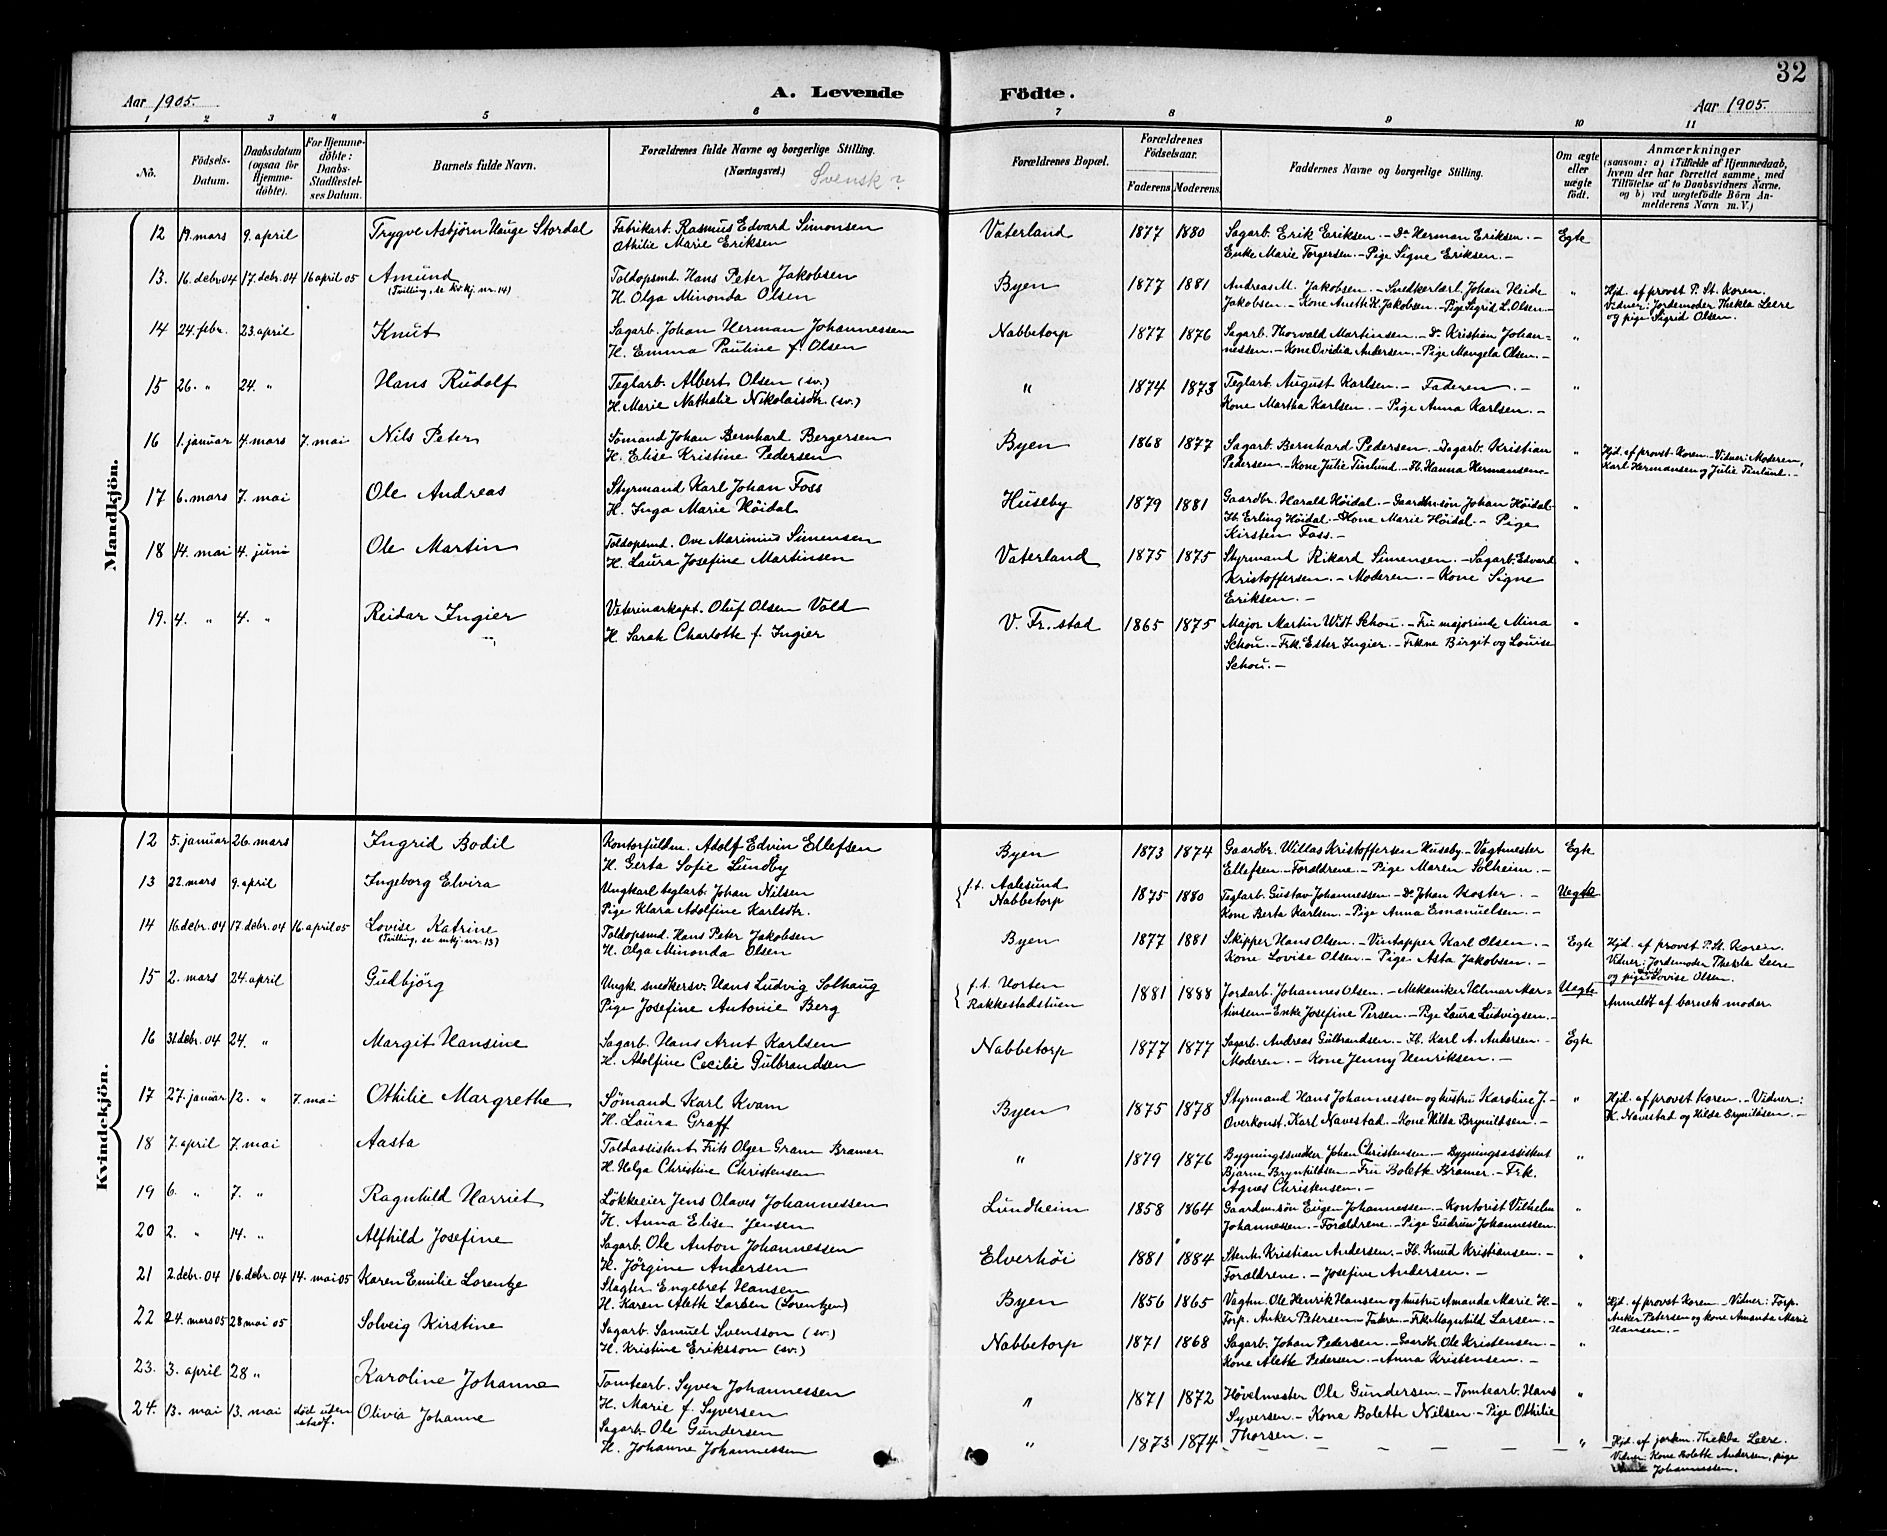 32
Aar 1905.
A. Levende Födte.
Aar 1905.
1 2 3 4 5 6 7 8 9 10 11
No.
Födsels-Datum.
Daabsdatum (ogsaa for Hjemme-döbte).
For Hjemme-döbte: Daabs-Stadfæstel-ses Datum.
Barnets fulde Navn.
Forældrenes fulde Navne og borgerlige Stilling. (Næringsvei.)
Svensk?
Forældrenes Bopæl.
Forældrenes Födselsaar.
Faderens. Moderens.
Faddernes Navne og borgerlige Stilling.
Om ægte eller uægte födt.
Anmærkninger
(saasom: a) i Tilfælde af Hjemmedaab, hvem der har forrettet samme, med Tilföielse af to Daabsvidners Navne, og b) ved uægtefödte Börn An-melderens Navn m. V.)
Mandkjön.
12 19. mars 9. april Trygve Asbjörn Hauge Stordal Fabrikarb. Rasmus Edvard Simonsen Vaterland 1877 1880 Sagarb. Erik Eriksen. - Do Herman Eriksen. - Egte
Othilie Marie Eriksen Enke Marie Torgersen. - Pige Signe Eriksen. -
13. 16. debr. 04 17. debr. 04 16 april 05 Amund Toldopsmd. Hans Peter Jakobsen Byen 1877 1881 Andreas M. Jakobsen - Snedkerlærl. Johan Heide " Hjd. af provst P. St. Koren.
(Tvilling, se kvkj. nr. 14) H. Olga Minonda Olsen Jakobsen - Kone Aneth K. Jakobsen - Pige Sigrid L. Olsen. - Vidner: Jordemoder Thekla Leere
og pige Sigrid Olsen.
14 24. febr. 23. april Knut Sagarb. Johan Herman Johannessen Nabbetorp 1877 1876 Sagarb. Thorvald Martinsen. - Do. Kristian Johan- "
H. Emma Pauline f. Olsen nessen. - Kone Ovidia Andersen. - Pige Mangela Olsen. -
15 26. " 24. " Hans Rudolf Teglarb. Albert Olsen (sv.) " 1874 1873 Teglarb. August Karlsen. - Faderen. - "
H. Marie Nathalie Nikolaisdtr. (sv.) Kone Martha Karlsen. - Pige Anna Karlsen. -
16 1. januar 4. mars 7. mai Nils Peter Sömand Johan Bernhard Bergersen Byen 1868 1877 Sagarb. Bernhard Pedersen - Sagarb. Kristian " Hjd. af provst Koren. - Vidner: Moderen,
H. Elise Kristine Pedersen Pedersen. - Kone Julie Tinlund. - H. Hanna Hermansen Karl Hermansen og Julie Tinlund. -
17 6. mars 7. mai Ole Andreas Styrmand Karl Johan Foss Huseby 1879 1881 Gaardbr. Harald Höidal. - Gaardbr.sön Johan Höidal. "
H. Inga Marie Höidal Erling Höidal. - Kone Marie Höidal. - Pige
Kirsten Foss. -
18 14. mai 4. juni Ole Martin Toldopsmd. Ove Marinius Simensen Vaterland 1875 1875 Styrmand Rikard Simensen. - Sagarb. Edvard "
H. Laura Josefine Martinsen Kristoffersen. - Moderen. - Kone Signe
Eriksen. -
19. 4. " 4. " Reidar Ingier Veterinærkapt. Oluf Olsen Vold V. Fr. stad 1865 1875 Major Martin Widt Schou. - Fru majorinde Mina "
H. Sarah Charlotte f. Ingier Schou. - Frk. Ester Ingier. - Frkne Birgit og Louise
Schou. -
Kvindekjön.
12 5. januar 26. mars Ingrid Bodil Kontorfuldm. Adolf Edvin Ellefsen Byen 1873 1874 Gaardbr. Willas Kristoffersen Huseby. - Vagtmester Egte
H. Gerta Sofie Lundby Ellefsen. - Forældrene. - Pige Maren Solheim. -
13 22. mars 9. april Ingeborg Elvira Ungkarl teglarb. Johan Nilsen f.t. Aalesund 1875 1880 Teglarb. Gustav Johannessen. - Do. Johan Koster. - Uegte
Pige Klara Adolfine Karlsdtr. Nabbetorp Kone Berta Karlsen. - Pige Anna Emanuelsen. -
14 16. debr. 04 17. debr. 04 16. april 05 Lovise Katrine Toldopsmd. Hans Peter Jakobsen Byen 1877 1881 Skipper Hans Olsen. - Vintapper Karl Olsen. - Egte Hjd. af provst P. St. Koren.
(Tvilling, se mkj. nr. 13) H. Olga Minonda Olsen Kone Lovise Olsen. - Pige Asta Jakobsen. - Vidner: Jordemoder Thekla Leere
og pige Lovise Olsen.
15 2. mars 24. april Gudbjörg Ungk. snedkersv. Hans Ludvig Solhaug f.t. Horten 1881 1888 Jordarb. Johannes Olsen. - Mekaniker Hilmar Mar- Uegte Anmeldt af barnets moder
Pige Josefine Antonie Berg Rakkestadstuen tinsen - Enke Josefine Persen. - Pige Laura Ludvigsen. -
16 31. debr. 04 24. " Margit Hansine Sagarb. Hans Arnt Karlsen Nabbetorp 1877 1877 Sagarb. Andreas Gulbrandsen. - Karl A. Andersen. - Egte
H. Adolfine Cecilie Gulbrandsen Moderen. - Kone Jenny Henriksen. -
17 27. januar 12. " 7. mai Othilie Margrethe Sömand Karl Kvam Byen 1875 1878 Styrmand Hans Johannessen og hustru Karoline J. - " Hjd. af provst Koren. - Vidner:
H. Laura Graff Overkonst. Karl Navestad. - Kone Hilda Brynildsen. - K. Navestad og Hilda Brynildsen. -
18 7. april 7. mai Aasta Toldassistent Frits Olger Gram Bramer " 1879 1876 Bygningssnedker Johan Christensen - Bygningsassistent "
H. Helga Christine Christensen Bjarne Brynhildsen - Fru Bolette Bramer - Frk.
Agnes Christensen. -
19 6. " 7. " Ragnhild Harriet Lökkeeier Jens Olaves Johannessen Lundheim 1858 1864 Gaardm.sön Eugen Johannessen. - Kontorist Vilhelm "
H. Anna Elise Jensen Johannessen. - Forældrene. - Pige Gudrun Johannessen.
20 2. " 14. " Alfhild Josefine Sagarb. Ole Anton Johannessen Elverhöi 1881 1884 Stenh. Kristian Andersen. - Knud Kristiansen. - "
H. Jörgine Andersen Forældrene. - Josefine Andersen. -
21 2. debr. 04 16. debr. 04 14. mai 05 Karen Emilie Lorentze Slagter Engebret Hansen Byen 1856 1865 Vagtm. Ole Henrik Hansen og hustru Amanda Marie H. - " Hjd. af provst Koren. - Vidner: Torp.
H. Karen Alette Larsen (Lorentzen) Torp. Anker Petersen - - Frk. Magnhild Larsen. - Anker Petersen og kone Amanda Marie
Hansen. -
22 24. mars 05 28 mai 05 Solveig Kirstine Sagarb. Samuel Svensson (sv.) Nabbetorp 1871 1868 Sagarb. Johan Pedersen. - Gaardbr. Ole Kristensen. - "
H. Kristine Eriksson (sv.) Kone Alette Pedersen. - Anna Kristensen. -
23. 3. april 28 " Karoline Johanne Tomtearb. Syver Johannessen " 1871 1872 Hövelmester Ole Gundersen. - Tomtearb. Hans "
H. Marie f. Syversen Syversen. - Kone Bolette Nilsen. - Pige Othilie
Thorsen. -
24. 13. mai 13. mai död uden stadf. Olivia Johanne Sagarb. Ole Gundersen " 1873 1874 " Hjd. af jordm. Thekla Leere.
H. Johanne Johannessen Vidner: Kone Bolette Andersen, pige
Johannessen.